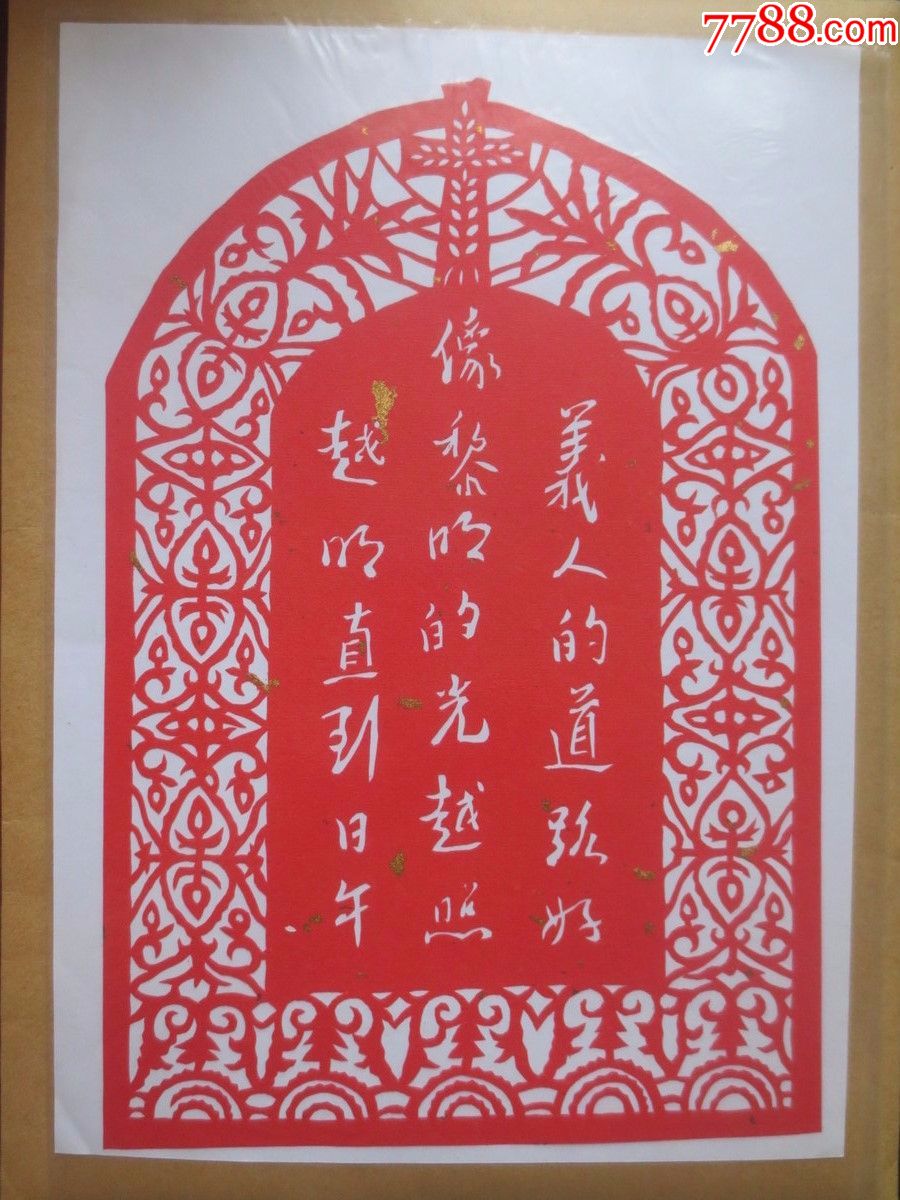 7788.com
義人的道路好
像黎明的光越照
越明直到日午